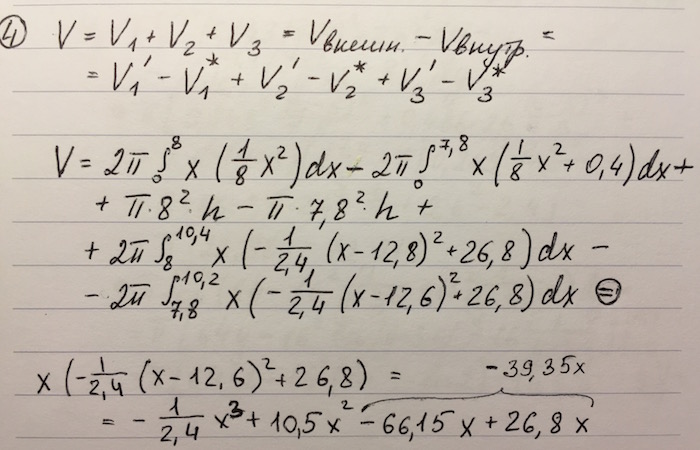 ④ V = V₁ + V₂ + V₃ = Vвнешн. − Vвнутр. =
= V₁' − V₁* + V₂' − V₂* + V₃' − V₃*
V = 2π ∫₀⁸ x (1/8 x²) dx − 2π ∫₀^7,8 x (1/8 x² + 0,4) dx +
+ π·8²·h − π·7,8²·h +
+ 2π ∫₈^10,4 x (−1/2,4 (x−12,8)² + 26,8) dx −
− 2π ∫_7,8^10,2 x (−1/2,4 (x−12,6)² + 26,8) dx ⊜
x (−1/2,4 (x−12,6)² + 26,8) = −39,35x
= −1/2,4 x³ + 10,5x² − 66,15x + 26,8x